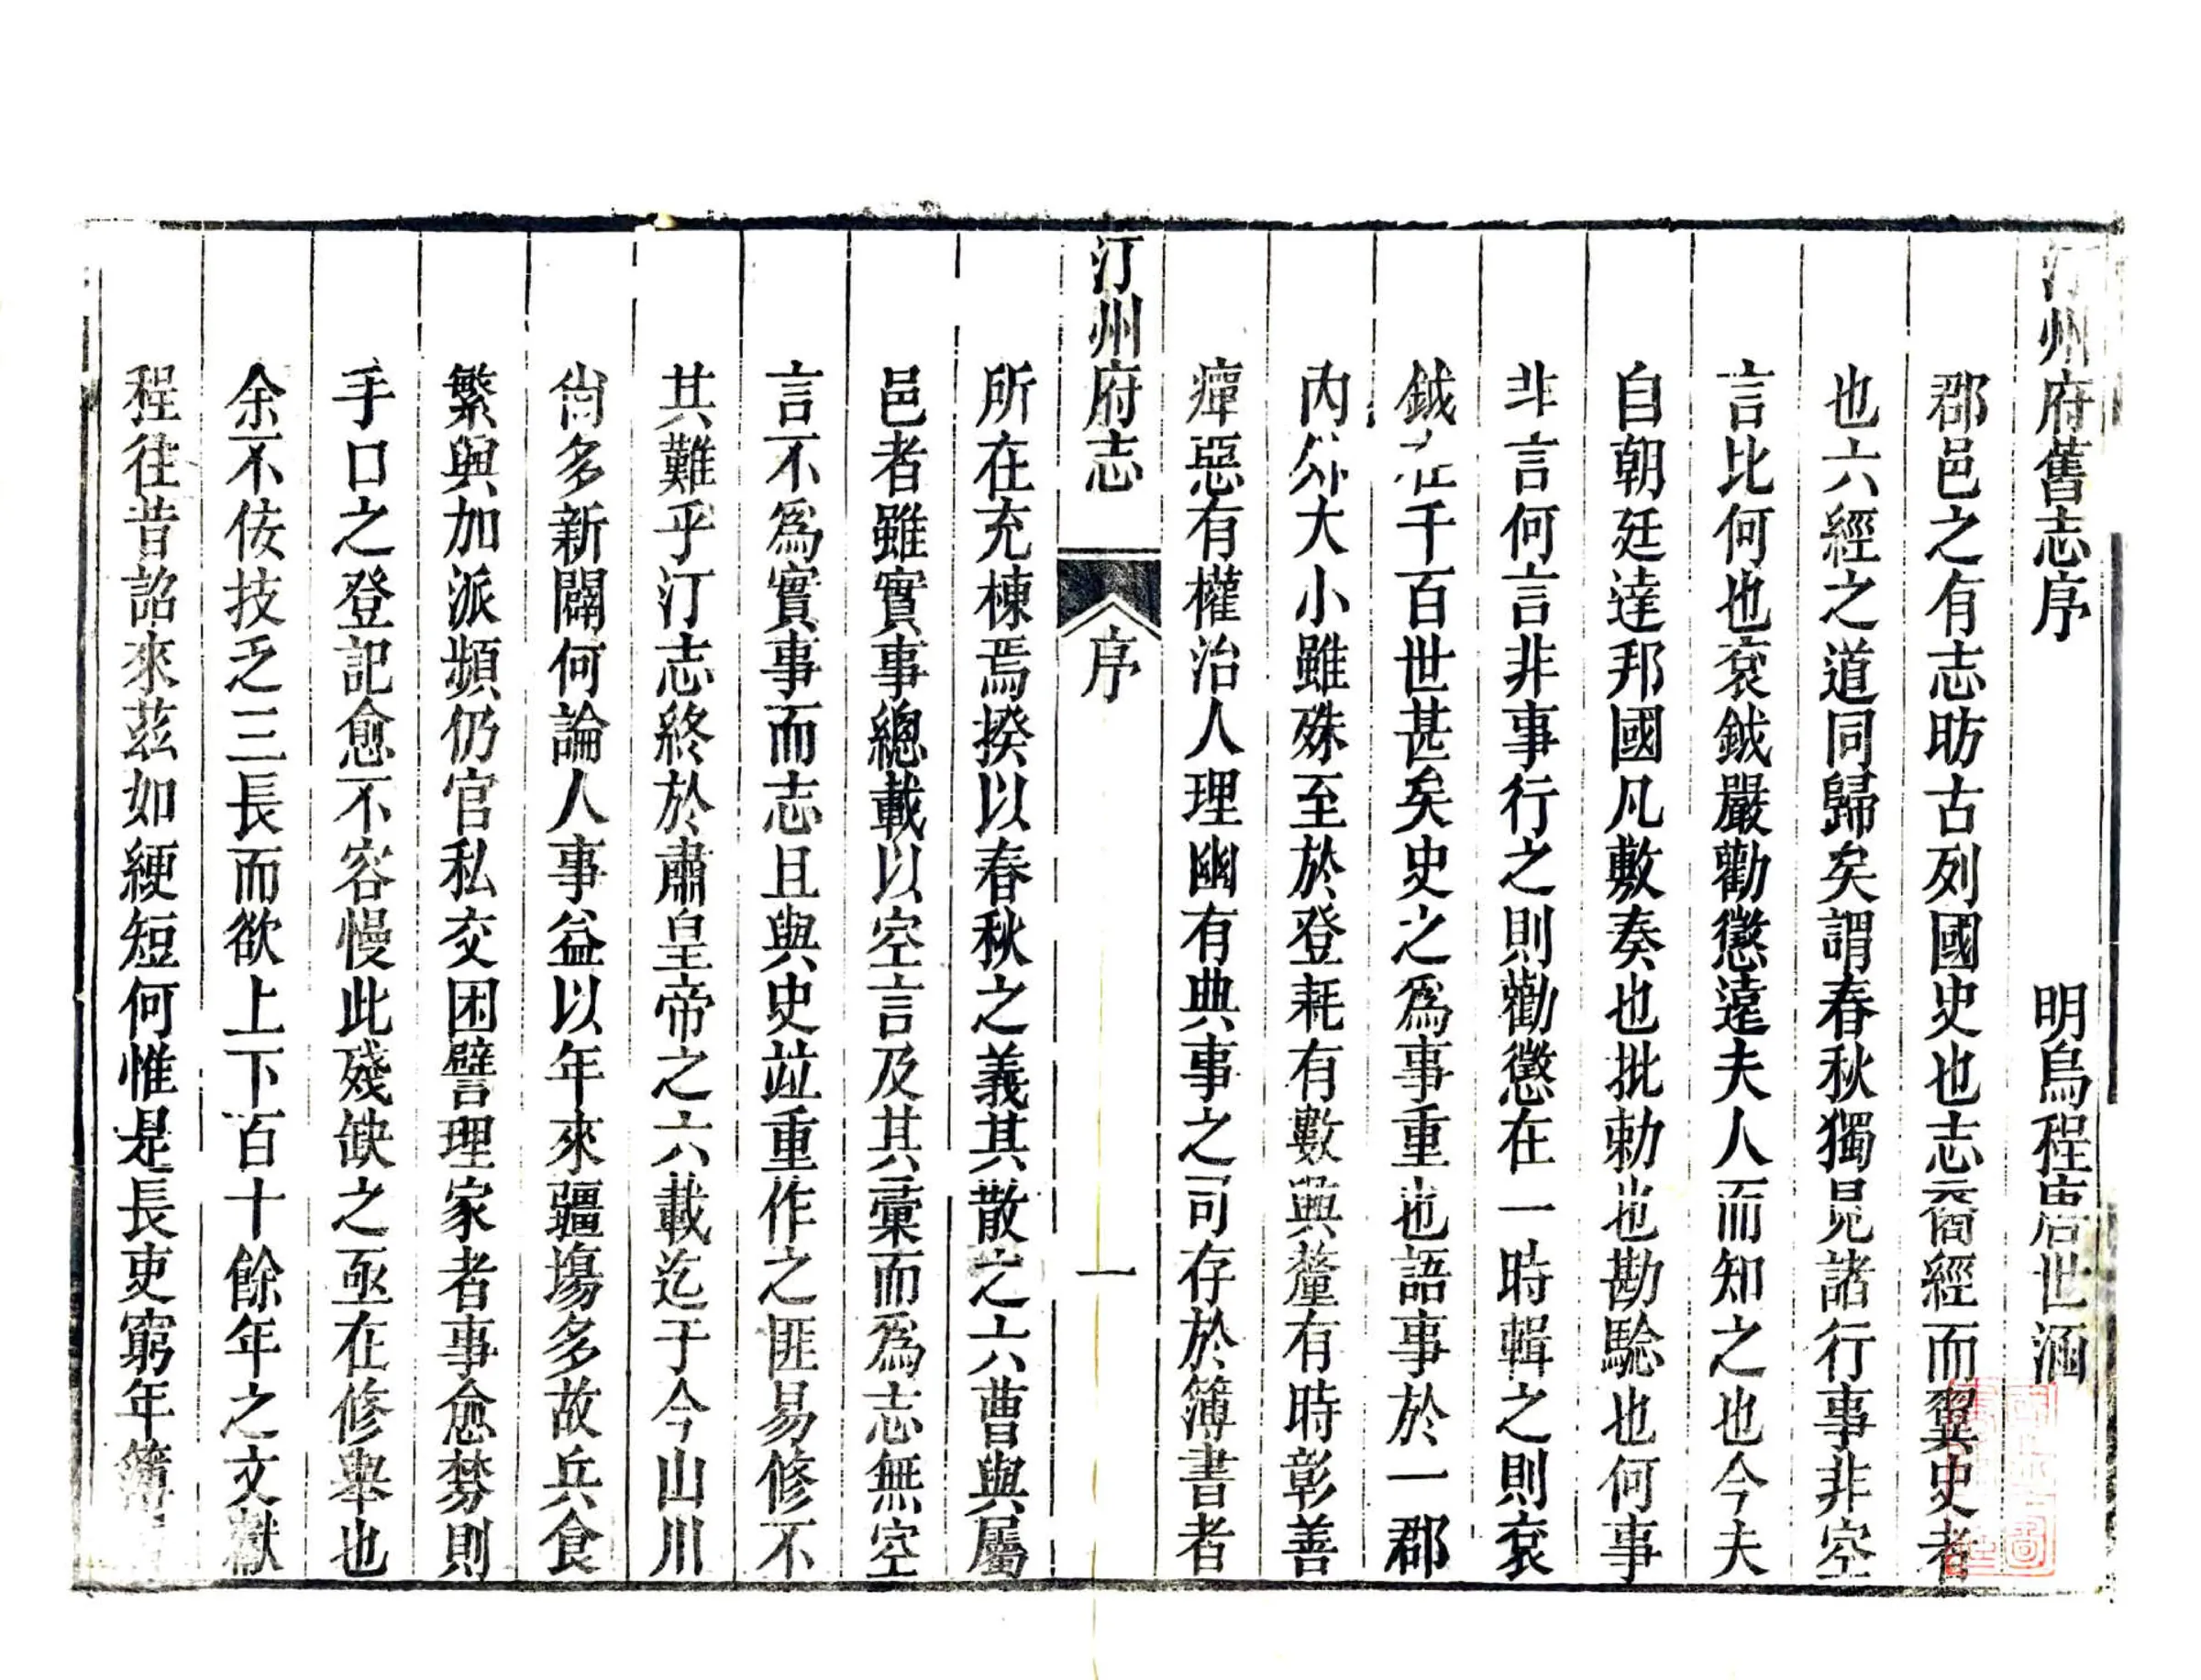 汀州府舊志序　明烏程唐世涵
郡邑之有志昉古列國史也志裔經而翼史者
也六經之道同歸矣謂春秋獨見諸行事非空
言比何也袞鉞嚴勸懲遠夫人而知之也今夫
自朝廷達邦國凡敷奏也批勅也勘騐也何事
非言何言非事行之則勸懲在一時輯之則袞
鉞在千百世甚矣史之爲事重也語事於一郡
内外大小雖殊至於登耗有數興釐有時彰善
癉惡有權治人理幽有典事之司存於簿書者
汀州府志　序　一
所在充棟焉揆以春秋之義其散之六曹與屬
邑者雖實事總載以空言及其彙而爲志無空
言不爲實事而志且與史竝重作之匪易修不
其難乎汀志終於肅皇帝之六載迄于今山川
尙多新闢何論人事益以年來疆塲多故兵食
繁與加派頻仍官私交困譬理家者事愈棼則
手口之登記愈不容慢此殘缺之亟在修舉也
余不佞技乏三長而欲上下百十餘年之文獻
程往昔詔來茲如綆短何惟是長吏窮年簿